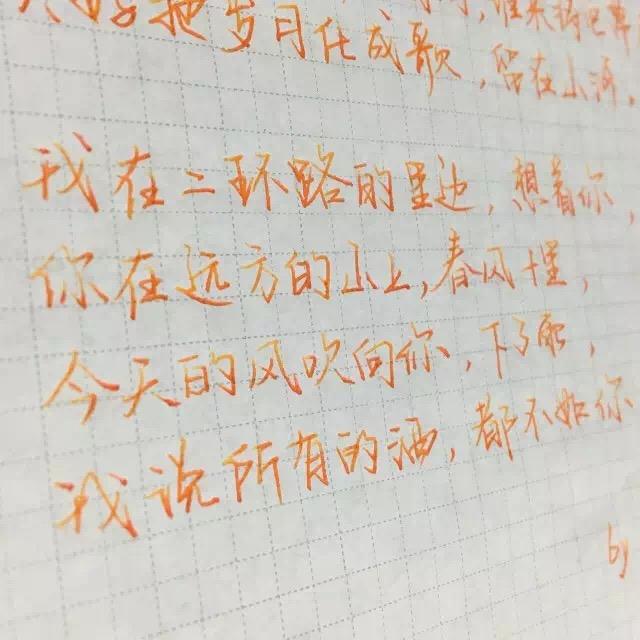 把岁月化成歌,留在山河,
我在二环路的里边,想着你,
你在远方的山上,春风十里,
今天的风吹向你,下了雨,
我说所有的酒,都不如你
by